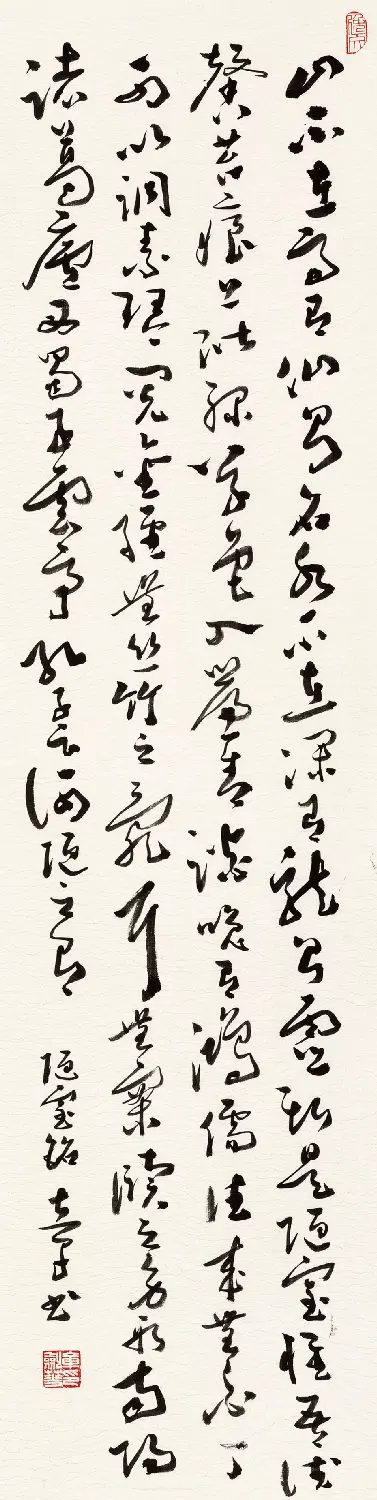 山不在高有仙則名水不在深有龍則靈斯是陋室惟吾德
馨苔痕上階綠草色入簾青談咲有鴻儒往来無白丁
可以調素琴閱金經無絲竹之亂耳無案牘之勞形南陽
諸葛廬西蜀子雲亭孔子云何陋之有
陋室銘 书